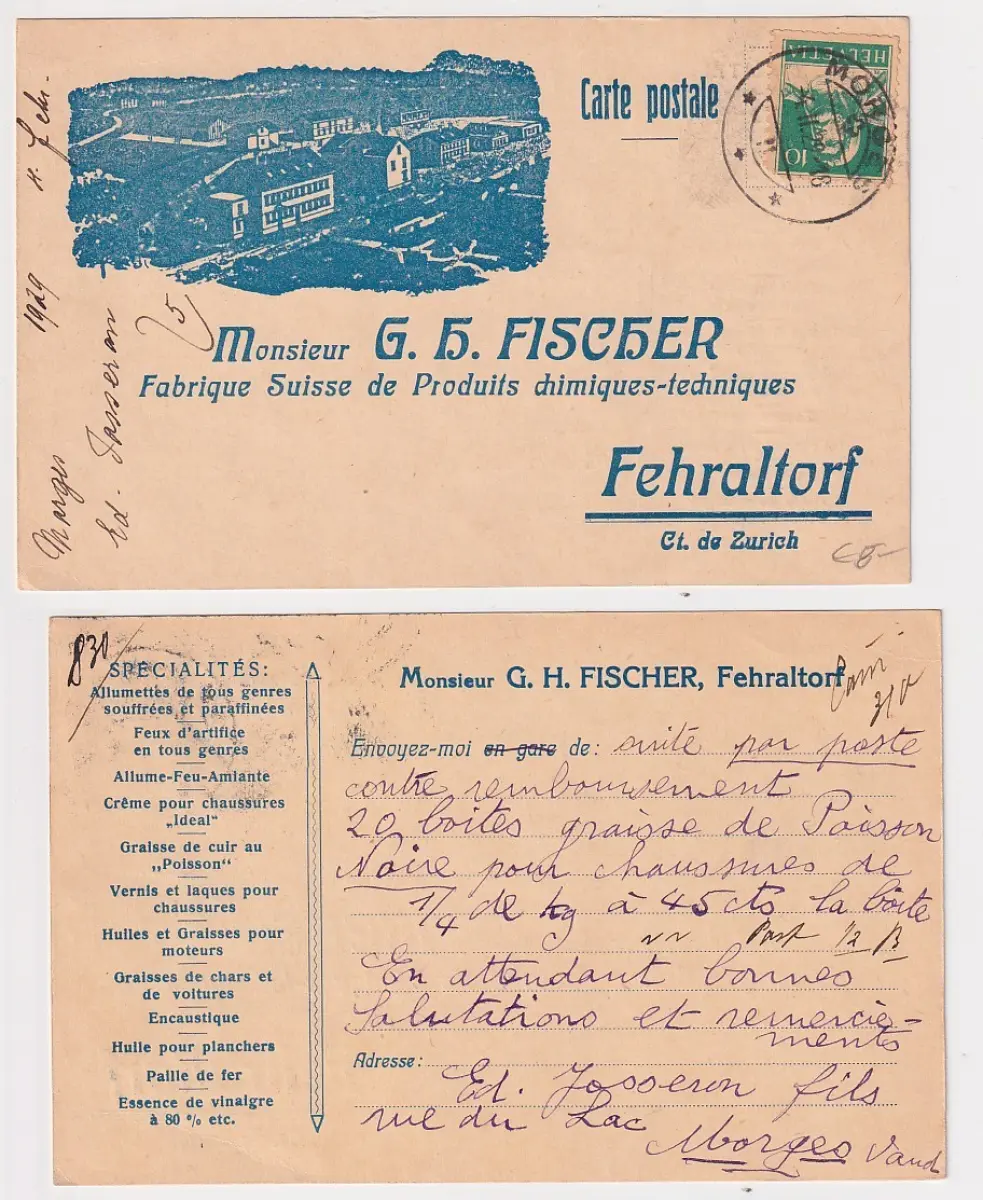 Carte postale
HELVETIA
10
MORGES
Morges 1929 11. Febr.
Ed. Josseron
5
Monsieur G. H. FISCHER
Fabrique Suisse de Produits chimiques-techniques
Fehraltorf
Ct. de Zurich
830
SPÉCIALITÉS:
Allumettes de tous genres
souffrées et paraffinées
Feux d'artifice
en tous genres
Allume-Feu-Amiante
Crême pour chaussures
„Ideal“
Graisse de cuir au
„Poisson“
Vernis et laques pour
chaussures
Huiles et Graisses pour
moteurs
Graisses de chars et
de voitures
Encaustique
Huile pour planchers
Paille de fer
Essence de vinaigre
à 80 % etc.
Monsieur G. H. FISCHER, Fehraltorf
Envoyez-moi en gare de: suite par poste
contre remboursement
20 boîtes graisse de Poisson
Noire pour chaussures de
1/4 de kg à 45 cts la boîte
Post
En attendant bonnes
Salutations et remercie-
ments
Adresse: Ed. Josseron fils
rue du Lac
Morges Vaud